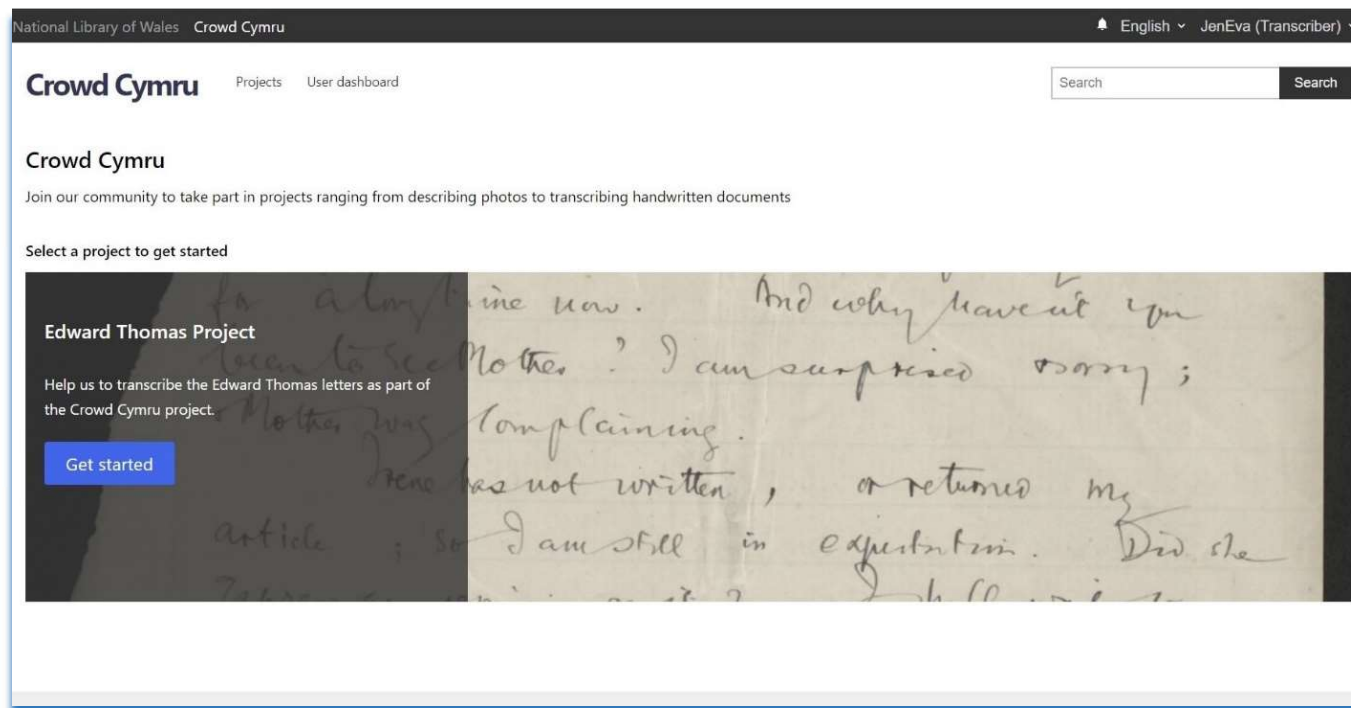 National Library of Wales Crowd Cymru English JenEva (Transcriber)
Crowd Cymru Projects User dashboard Search Search
Crowd Cymru
Join our community to take part in projects ranging from describing photos to transcribing handwritten documents
Select a project to get started
Edward Thomas Project
Help us to transcribe the Edward Thomas letters as part of
the Crowd Cymru project.
Get started
for a long time now. And why haven't you
been to see Mother? I am surprised sorry;
Mother was complaining.
Irene has not written, or returned my
article; so I am still in expectation. Did she